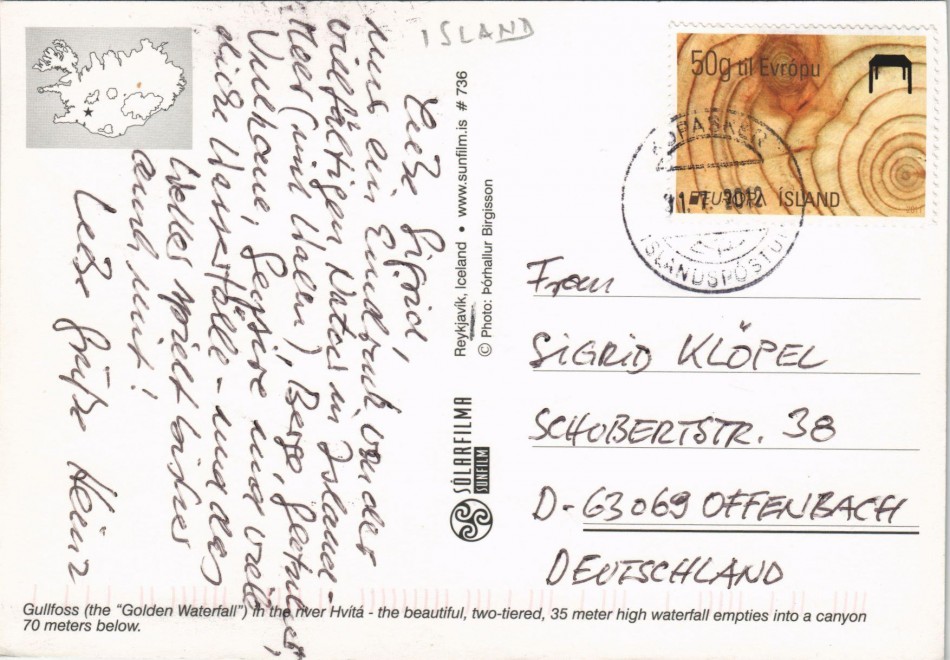 ISLAND
Liebe Sigrid,
nur ein Eindruck von der
vielfältigen Natur in Island -
Meer (mit Walen), Berge, Gletscher,
Vulkane, Geysire und viele
dicke Wasserfälle - und das
Wetter spielt bisher
auch mit!
Liebe Grüße Heinz
Reykjavík, Iceland • www.sunfilm.is # 736
© Photo: Þórhallur Birgisson
SÓLARFILMA
SUNFILM
50g til Evrópu
EUROPA ÍSLAND
2011
KÓPASKER
11.7. 2012
ÍSLANDSPÓSTUR
Frau
SIGRID KLÖPEL
SCHUBERTSTR. 38
D-63069 OFFENBACH
DEUTSCHLAND
Gullfoss (the "Golden Waterfall") in the river Hvítá - the beautiful, two-tiered, 35 meter high waterfall empties into a canyon
70 meters below.